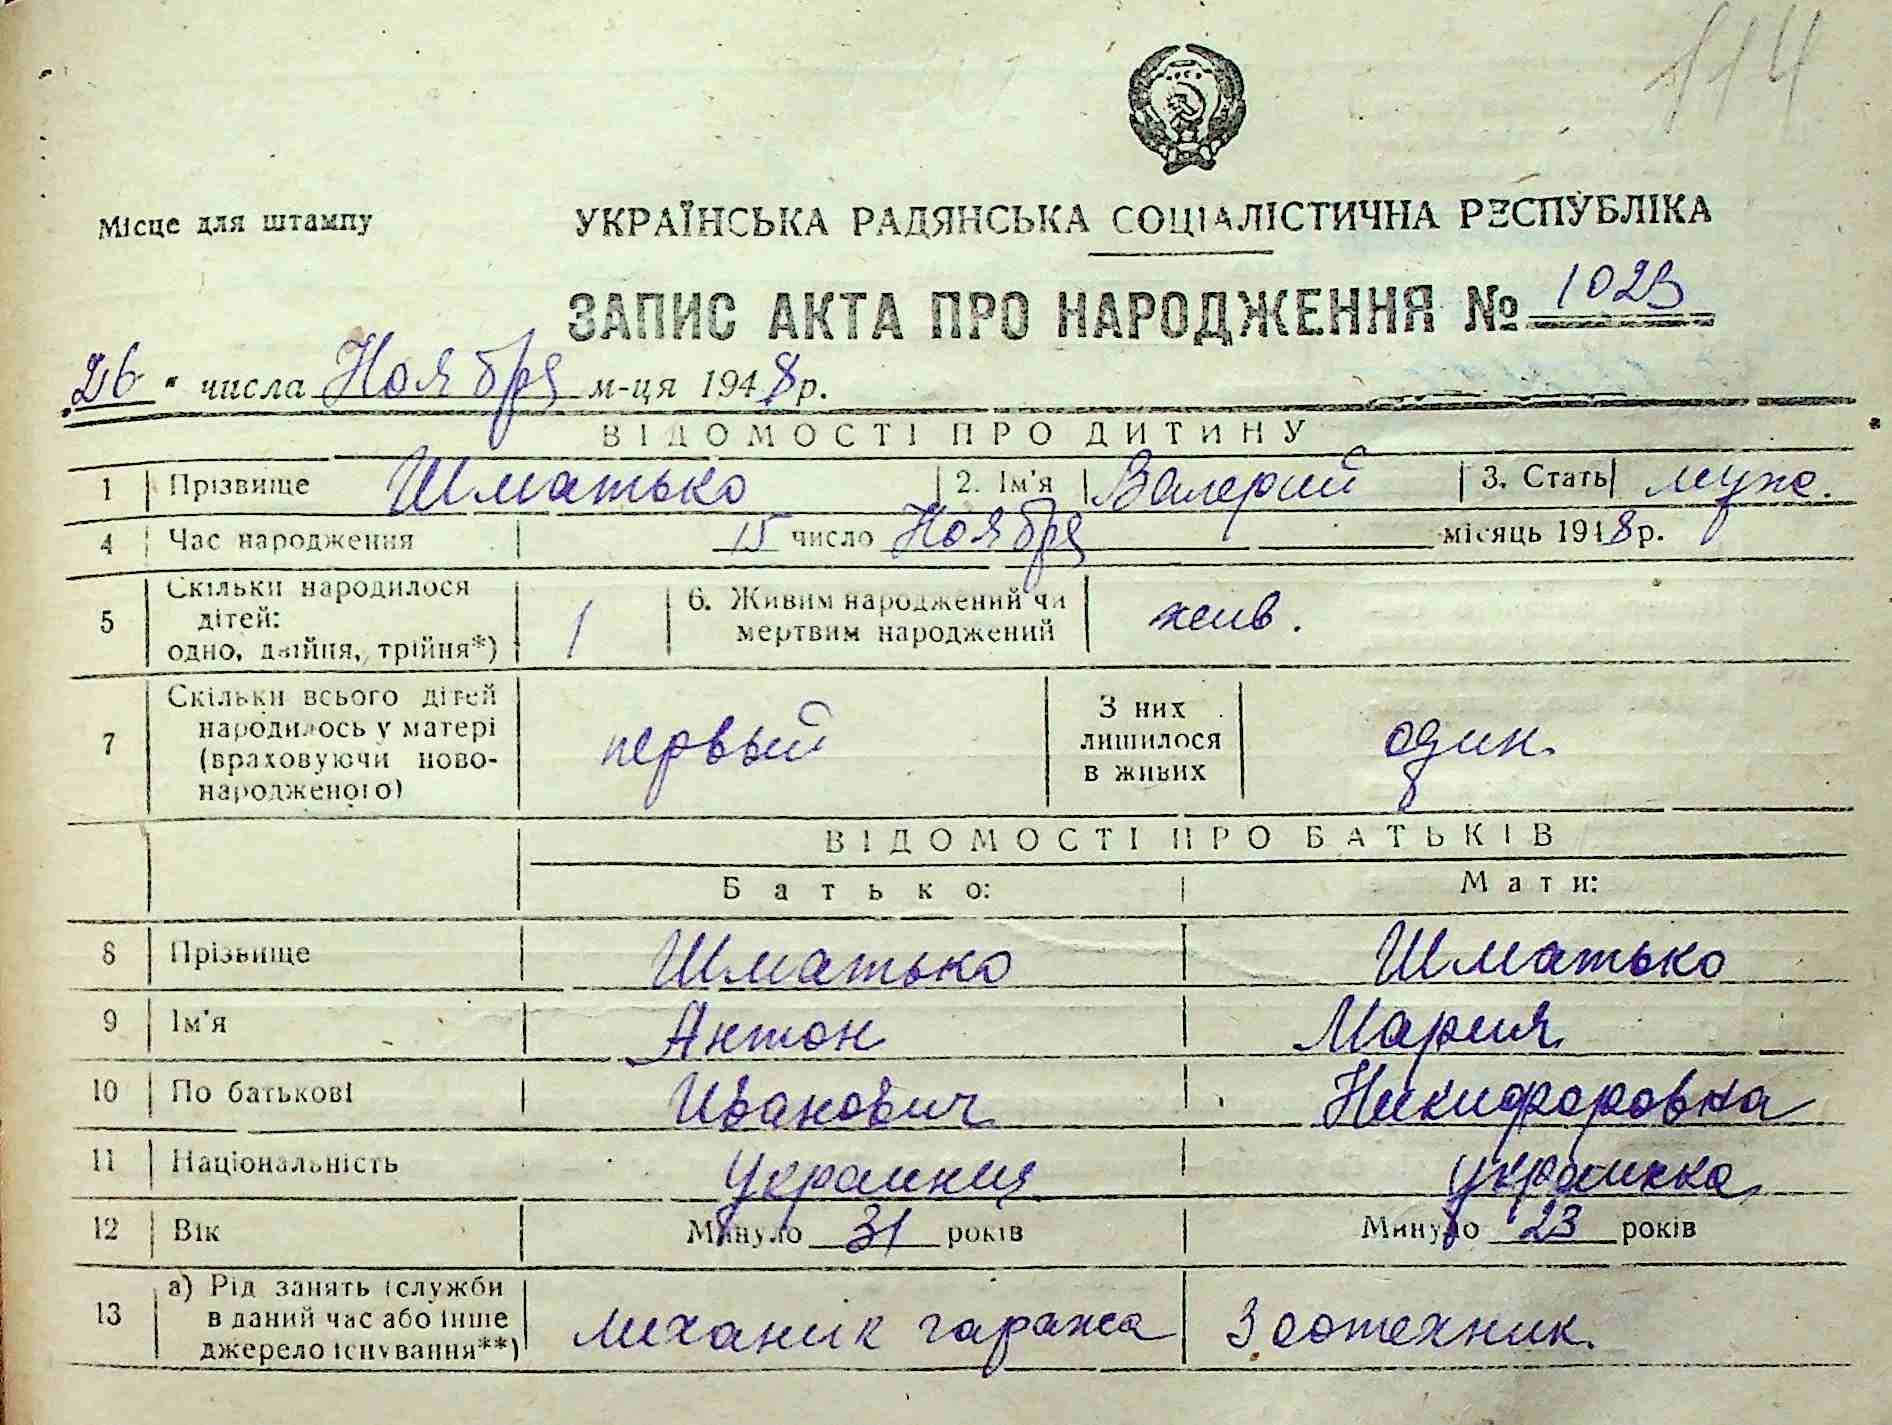 114
Місце для штампу
УКРАЇНСЬКА РАДЯНСЬКА СОЦІАЛІСТИЧНА РЕСПУБЛІКА
ЗАПИС АКТА ПРО НАРОДЖЕННЯ № 1023
„26" числа Ноября м-ця 1948 р.
ВІДОМОСТІ ПРО ДИТИНУ
1 Прізвище Шматько 2. Ім'я Валерий 3. Стать муж.
4 Час народження 15 число Ноября місяць 1948 р.
5 Скільки народилося дітей: одно, двійня, трійня*) 1 6. Живим народжений чи мертвим народжений жив.
7 Скільки всього дітей народилось у матері (враховуючи ново-народженого) первый З них лишилося в живих один
ВІДОМОСТІ ПРО БАТЬКІВ
Батько: Мати:
8 Прізвище Шматько Шматько
9 Ім'я Антон Мария
10 По батькові Иванович Никифоровна
11 Національність украинец украинка
12 Вік Минуло 31 років Минуло 23 років
13 а) Рід занять (служби в даний час або інше джерело існування**) механик гаража Зоотехник.